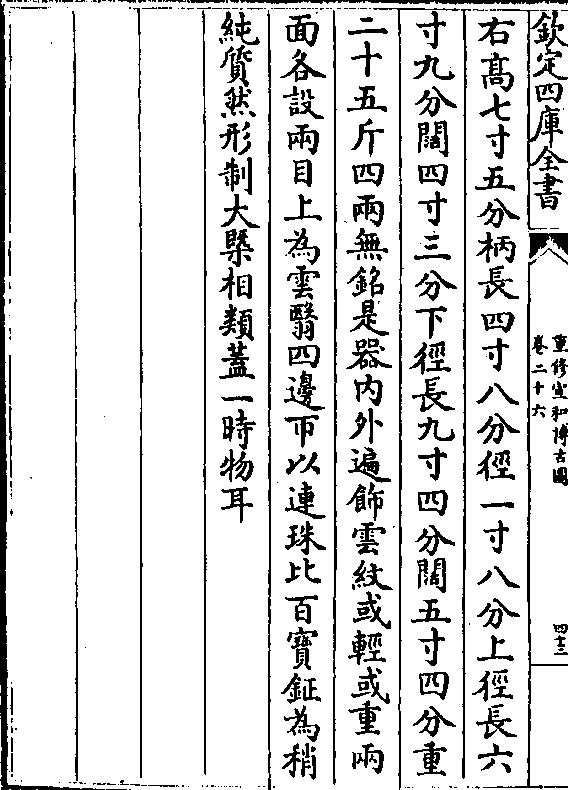 欽定四庫全書
重修宣和博古圖
卷二十六
四十三
右高七寸五分柄長四寸八分徑一寸八分上徑長六
寸九分闊四寸三分下徑長九寸四分闊五寸四分重
二十五斤四兩無銘是器内外遍飾雲紋或輕或重兩
面各設兩目上為雲翳四邊帀以連珠比百寶鉦為稍
純質然形制大槩相類蓋一時物耳